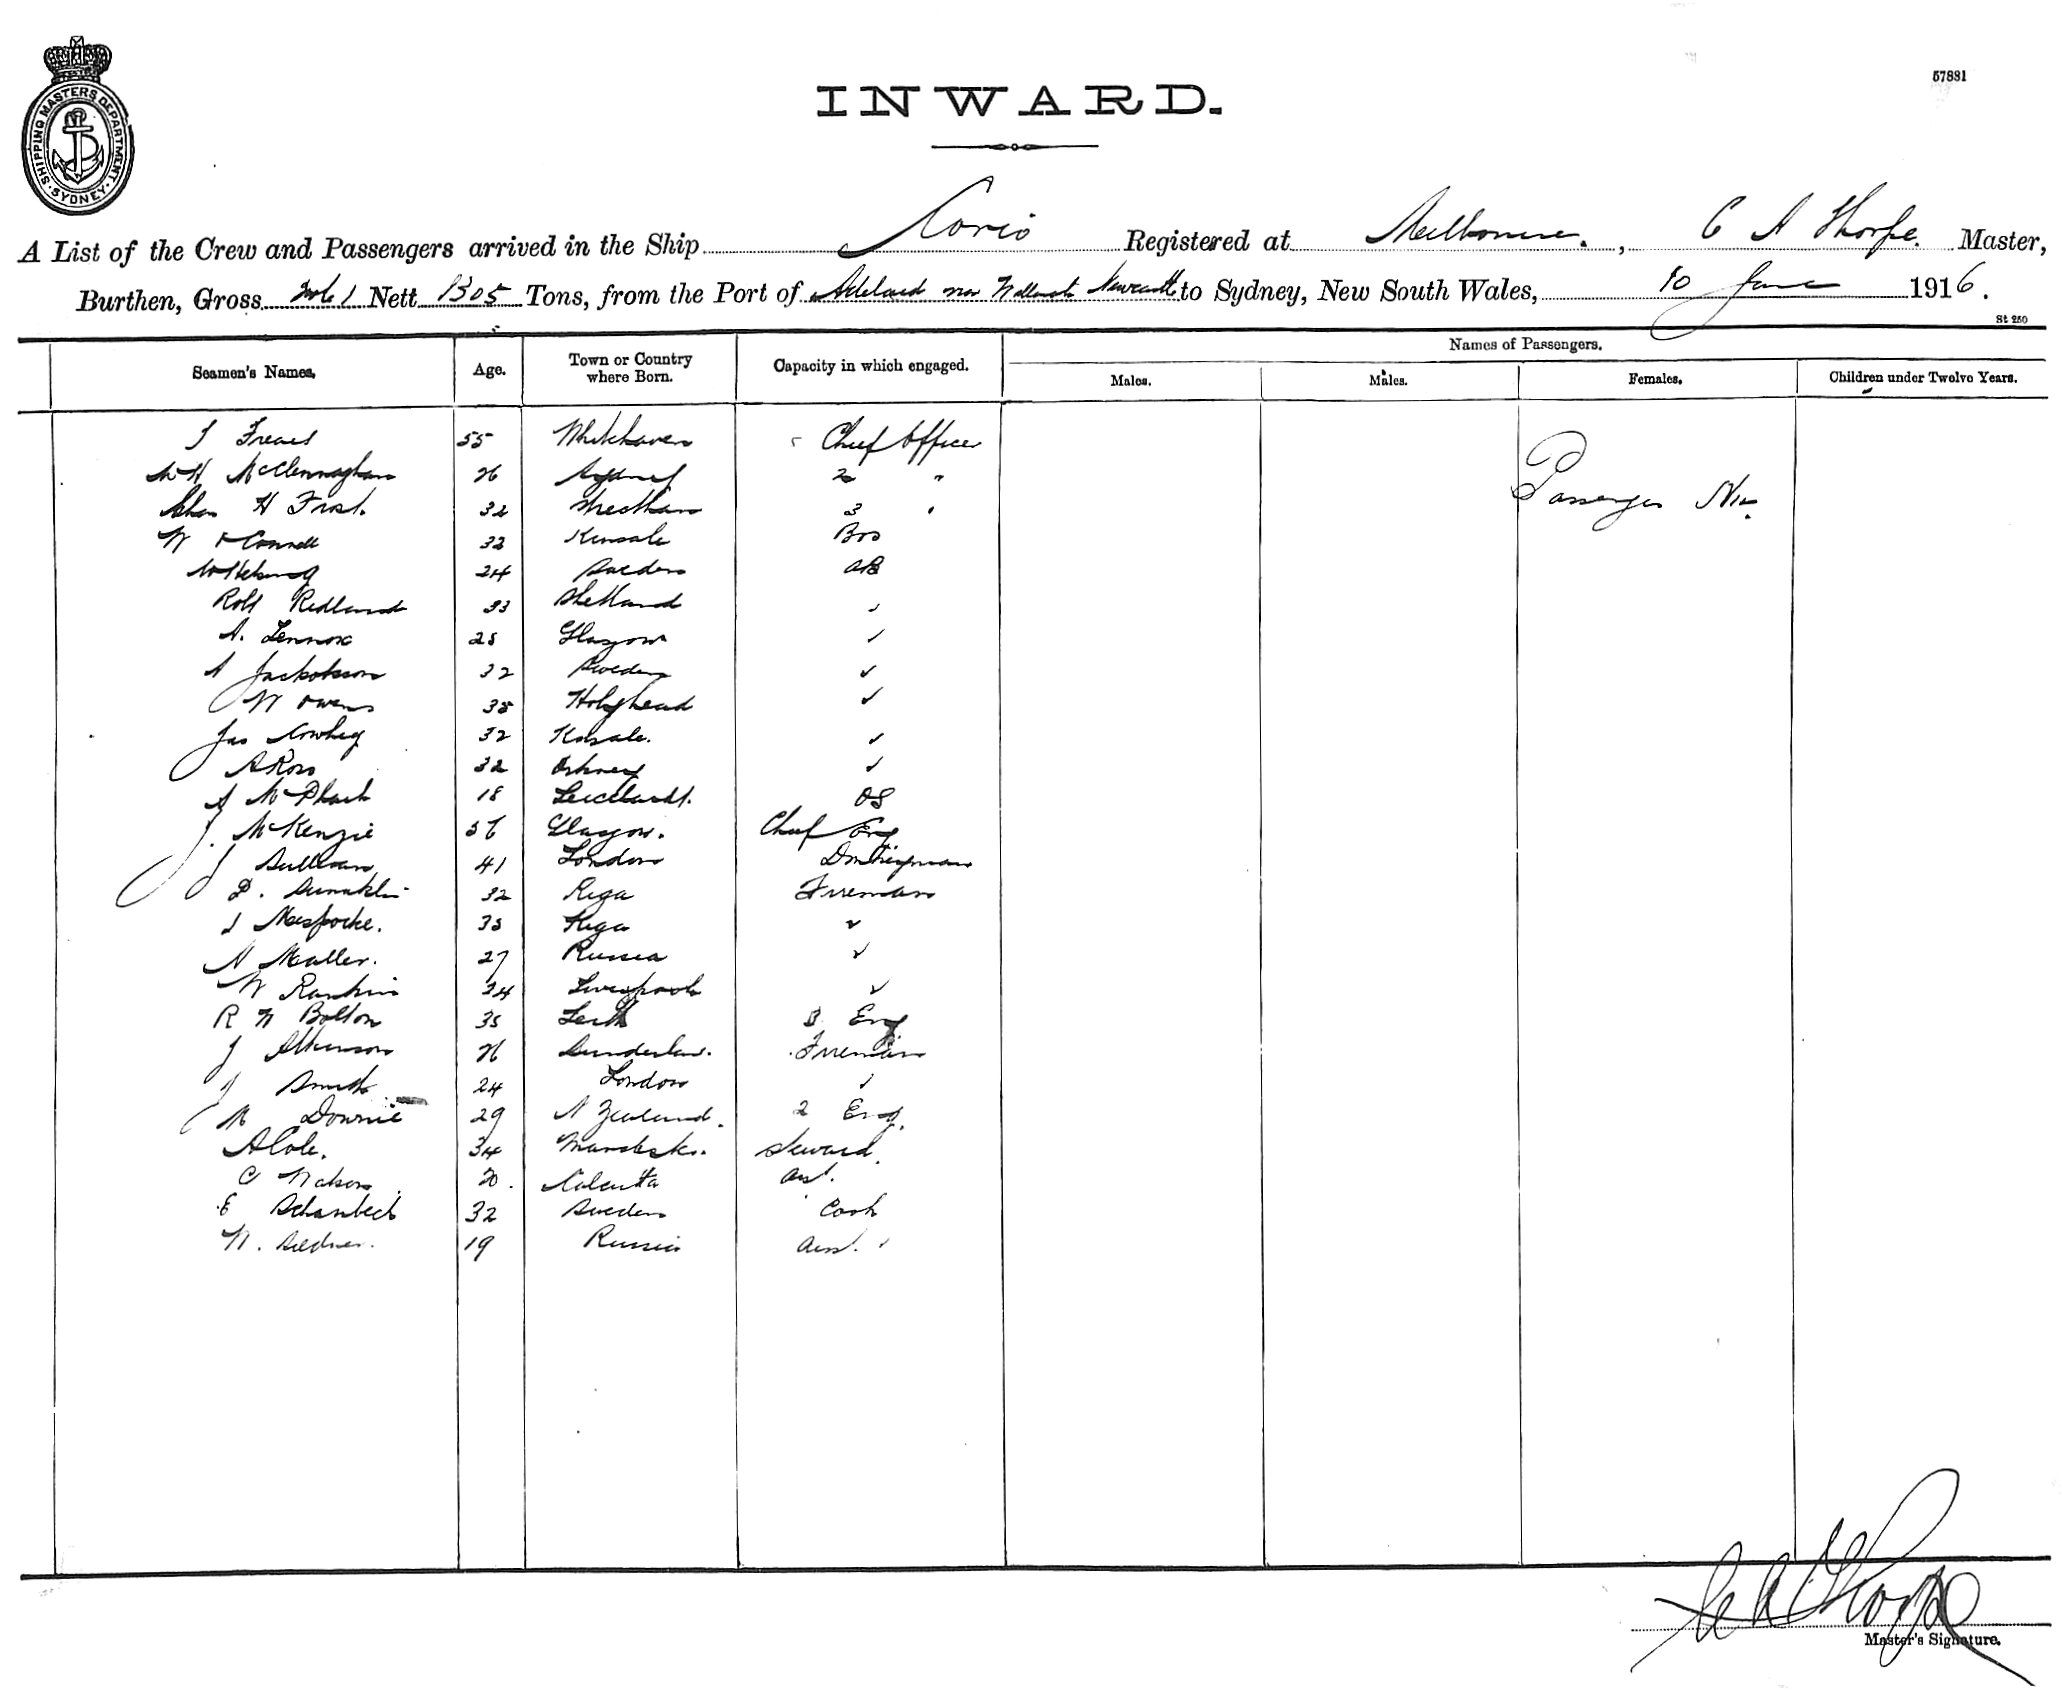 SHIPPING MASTERS DEPARTMENT. SYDNEY.
57881
INWARD.
A List of the Crew and Passengers arrived in the Ship Corio Registered at Melbourne. , C A Thorpe. Master,
Burthen, Gross Nett 1305 Tons, from the Port of Newcastle to Sydney, New South Wales, 10 June 1916.
St 250
Seamen's Names. Age. Town or Country where Born. Capacity in which engaged. Names of Passengers.
Males. Males. Females. Children under Twelve Years.
J 55 Whitehaven Chief Officer
McClennaghan 26 Sydney 2 "
Chas H Frost. 32 3 "
W O'Connell 32 Kinsale Bos
24 Sweden AB
Robt Redland 33 Shetland "
A. Lennox 28 Glasgow "
A Jackobson 32 Sweden "
W Owens 38 Holyhead "
Jas Cowhey 32 Kinsale. "
A Ross 32 Orkney "
A 18 Leichhardt. OS
J. McKenzie 56 Glasgow. Chief Eng
J Sullivan 41 London Donkeyman
32 Riga Fireman
35 Riga "
N Muller. 27 Russia "
W Rankin 34 Liverpool "
R W Bolton 35 Leith 3 Eng
J Atkinson 26 Sunderland. Fireman
J Smith 24 London "
M Downie 29 N Zealand. 2 Eng.
A Cole. 34 Steward.
C Watson 20. Calcutta Asst.
E 32 Sweden Cook
W. 19 Russia Asst.
Passengers Nil.
C A Thorpe
Master's Signature.